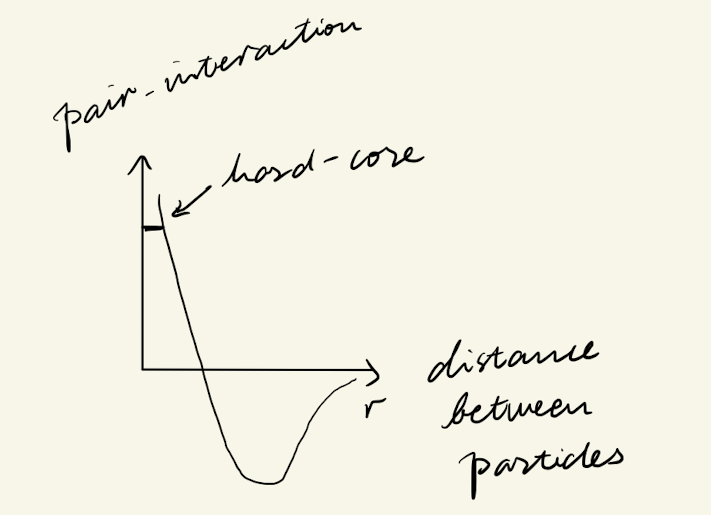 pair-interaction
hard-core
r
distance
between
particles